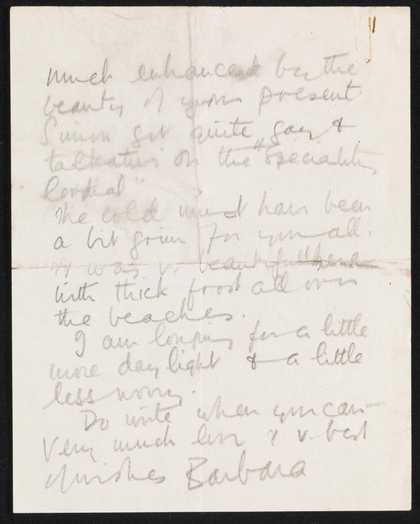 much enhanced by the
beauty of your present
Simon got quite gay &
talkative on the "speciality
Cordial"
The cold must have been
a bit grim for you all.
It was v. beautiful here
with thick frost all over
the beaches.
I am longing for a little
more daylight & a little
less worry.
Do write when you can –
Very much love & v. best
wishes Barbara